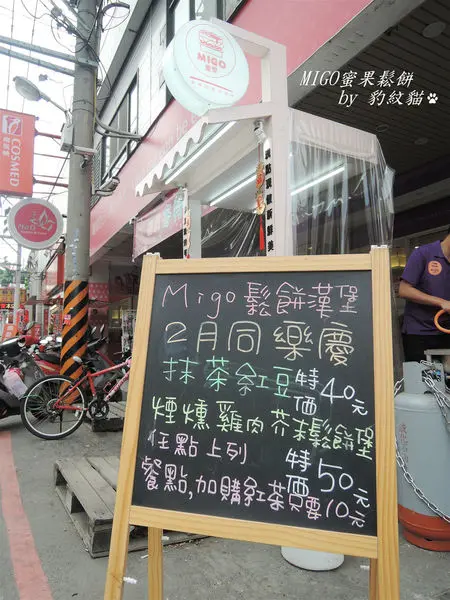 MIGO
蜜果
MIGO蜜果鬆餅
by 豹紋貓
COSMED
康是美
Migo 鬆餅漢堡
2月同樂慶
抹茶紅豆 特價 40元
煙燻雞肉芥末鬆餅堡
任點上列 特價 50元
餐點,加購紅茶只要10元